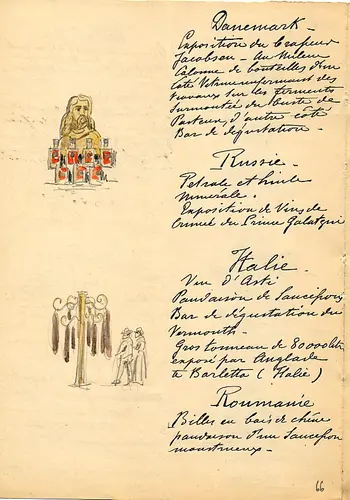 Danemark –
Exposition du brasseur
Jacobsen – Au milieu
Colonne de bouteilles d'un
Côté Vitrine renfermant des
travaux sur les ferments
Surmontée du buste de
Pasteur, d'autre côté
Bar de dégustation –
Russie –
Pétrole et huile
minérale.
Exposition de Vins de
Crimée du Prince Galatzin
Italie –
Vin d'Asti
Pendaison de Saucissons
Bar de dégustation du
Vermouth –
Gros tonneau de 80000 litres
exposé par
à Barletta (Italie)
Roumanie
Billes en bois de chêne
pendaison d'un Saucisson
monstrueux –
66